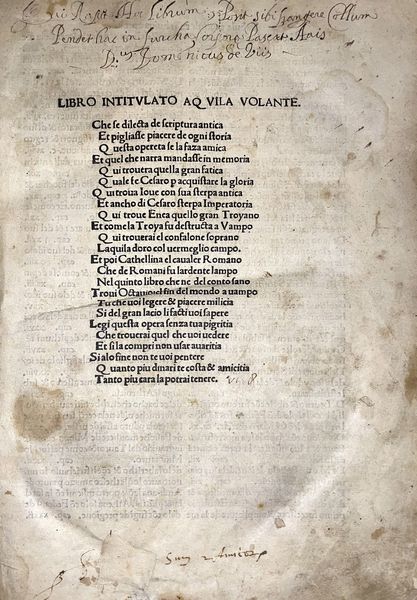 Qui Rapit Hor librum, Pont sibi frangere Collum
Pendet hac in furcha Corpus Pascat Auis
D. Dominicus de Viis
LIBRO INTITVLATO AQ VILA VOLANTE.
Che se dilecta de scriptura antica
Et pigliasse piacere de ogni storia
Q uesta opereta se la faza amica
Et quel che narra mandasse in memoria
Q ui trouera quella gran fatica
Q uale fe Cesaro p acquistare la gloria
Q ui troua Ioue cun sua sterpa antica
Et ancho di Cesaro sterpa Imperatoria
Q ui troue Enea quello gran Troyano
Et come la Troya fu destructa a Vampo
Q ui trouerai el confalone soprano
Laquila doro col uermeglio campo.
Et poi Cathellina el caualer Romano
Che de Romani fu lardente lampo
Nel quinto libro che ne del conto sano
Troui Octauio nel fin del mondo a uampo
Tu che uoi legere & piacere milicia
Si del gran lacio li facti uoi sapere
Legi questa opera senza tua pigritia
Che trouerai quel che uoi uedere
Et si la compri non usar auaritia
Si alo fine non te uoi pentere
Q uanto piu dinari te costa & amicitia
Tanto piu cara la potrai tenere.
Sum